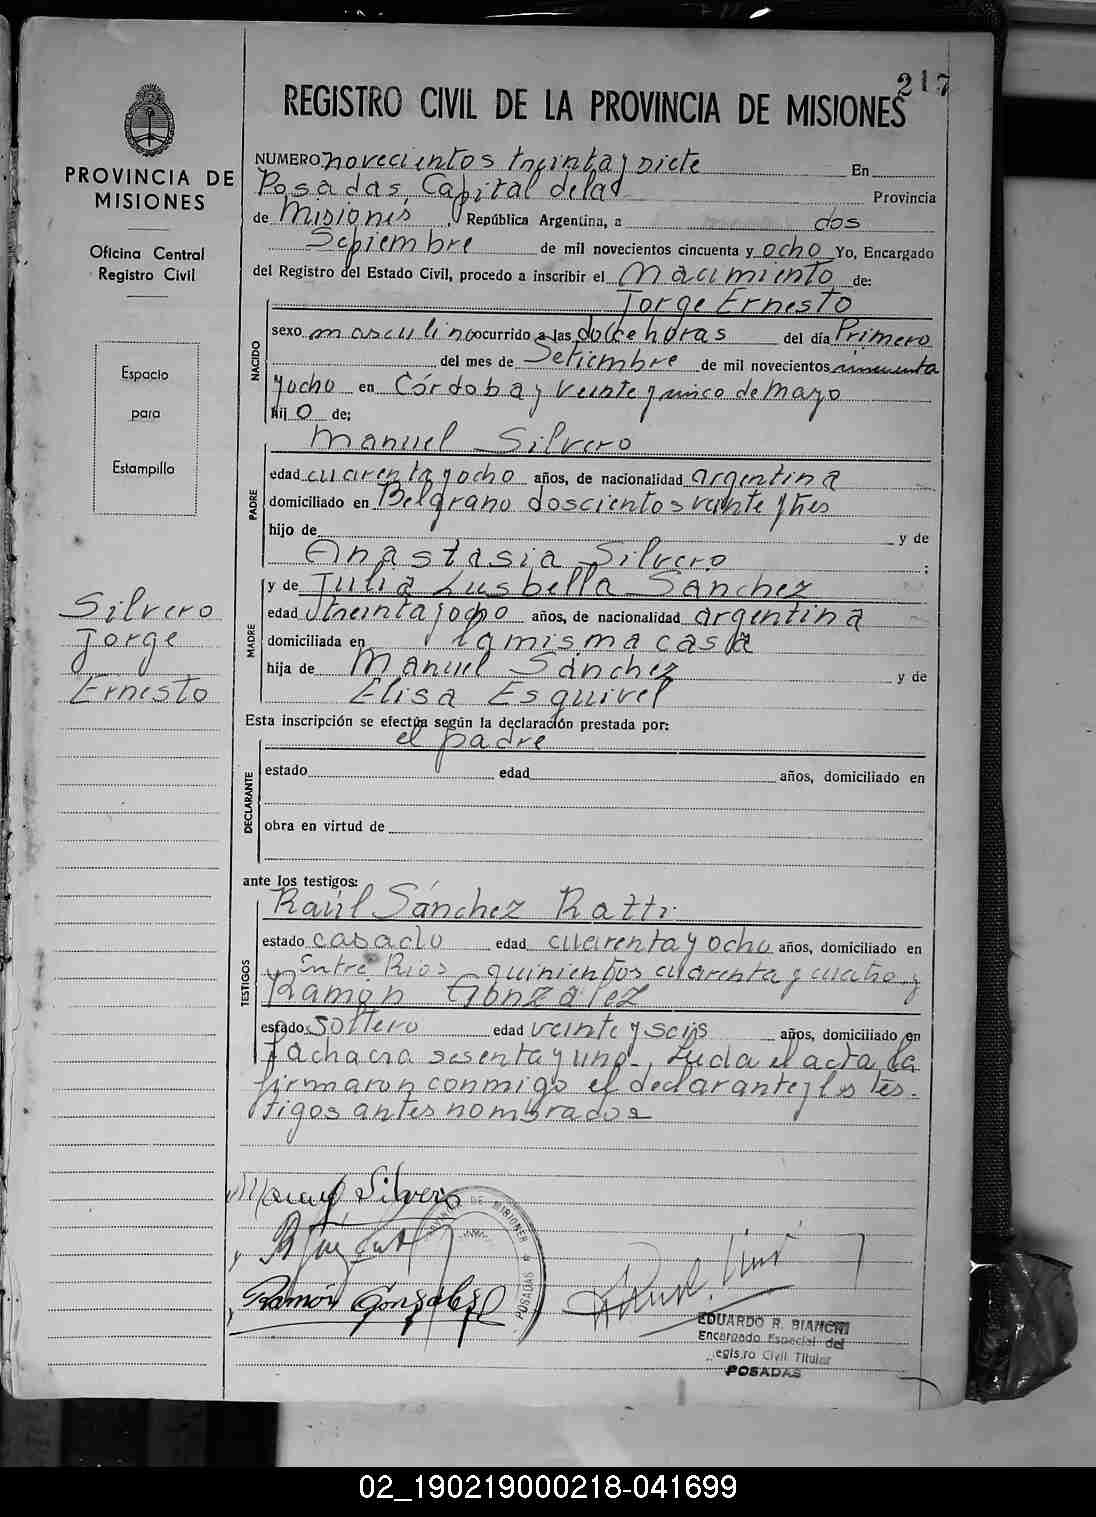 217
REGISTRO CIVIL DE LA PROVINCIA DE MISIONES
PROVINCIA DE
MISIONES
Oficina Central
Registro Civil
Espacio
para
Estampilla
Silvero
Jorge
Ernesto
NUMERO novecientos treinta y siete En
Posadas, Capital de la Provincia
de Misiones, República Argentina, a dos
Septiembre de mil novecientos cincuenta y ocho Yo, Encargado
del Registro del Estado Civil, procedo a inscribir el Nacimiento de:
Jorge Ernesto
NACIDO
sexo masculino ocurrido a las dolce horas del día Primero
del mes de Setiembre de mil novecientos cincuenta
y ocho en Córdoba y veinte y cinco de Mayo
hijo de:
Manuel Silvero
PADRE
edad cuarenta y ocho años, de nacionalidad argentina
domiciliado en Belgrano doscientos veinte y tres
hijo de y de
Anastasia Silvero ;
y de Julia Lusbella Sánchez
MADRE
edad treinta y ocho años, de nacionalidad argentina
domiciliada en la misma casa
hija de Manuel Sánchez y de
Elisa Esquivel
Esta inscripción se efectúa según la declaración prestada por:
el padre
DECLARANTE
estado edad años, domiciliado en
obra en virtud de
ante los testigos:
Raúl Sánchez Ratti
TESTIGOS
estado casado edad cuarenta y ocho años, domiciliado en
Entre Rios quinientos cuarenta y cuatro y
Ramón González
estado soltero edad veinte y seis años, domiciliado en
Pachacra sesenta y uno. Leida el acta la
firmaron conmigo el declarante y los tes-
tigos antes nombrados
Manuel Silvero
Ramón González
POSADAS
EDUARDO R. BIANCHI
Encargado Especial del
egistro Civil Titular
POSADAS
02_190219000218-041699